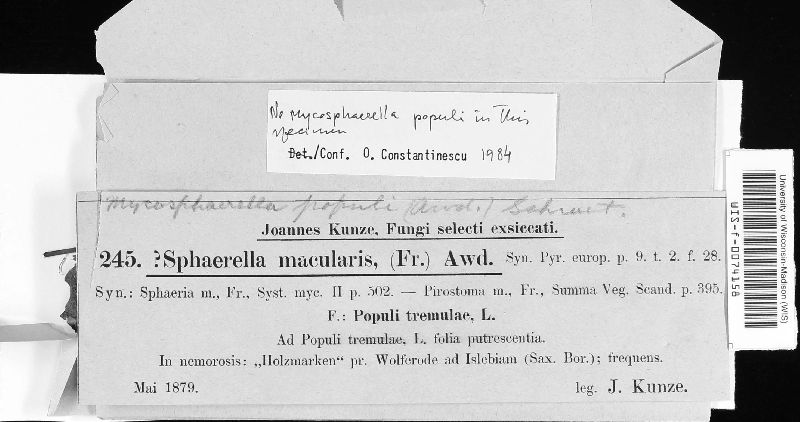 No Mycosphaerella populi in this
specimen
Det./Conf. O. Constantinescu 1984
Mycosphaerella populi (Awd.) Schroet.
Joannes Kunze, Fungi selecti exsiccati.
245. ?Sphaerella macularis, (Fr.) Awd. Syn. Pyr. europ. p. 9. t. 2. f. 28.
Syn.: Sphaeria m., Fr., Syst. myc. II p. 502. — Pirostoma m., Fr., Summa Veg. Scand. p. 395.
F.: Populi tremulae, L.
Ad Populi tremulae, L. folia putrescentia.
In nemorosis: „Holzmarken“ pr. Wolferode ad Islebiam (Sax. Bor.); frequens.
Mai 1879. leg. J. Kunze.
University of Wisconsin-Madison (WIS)
WIS-f-0074158